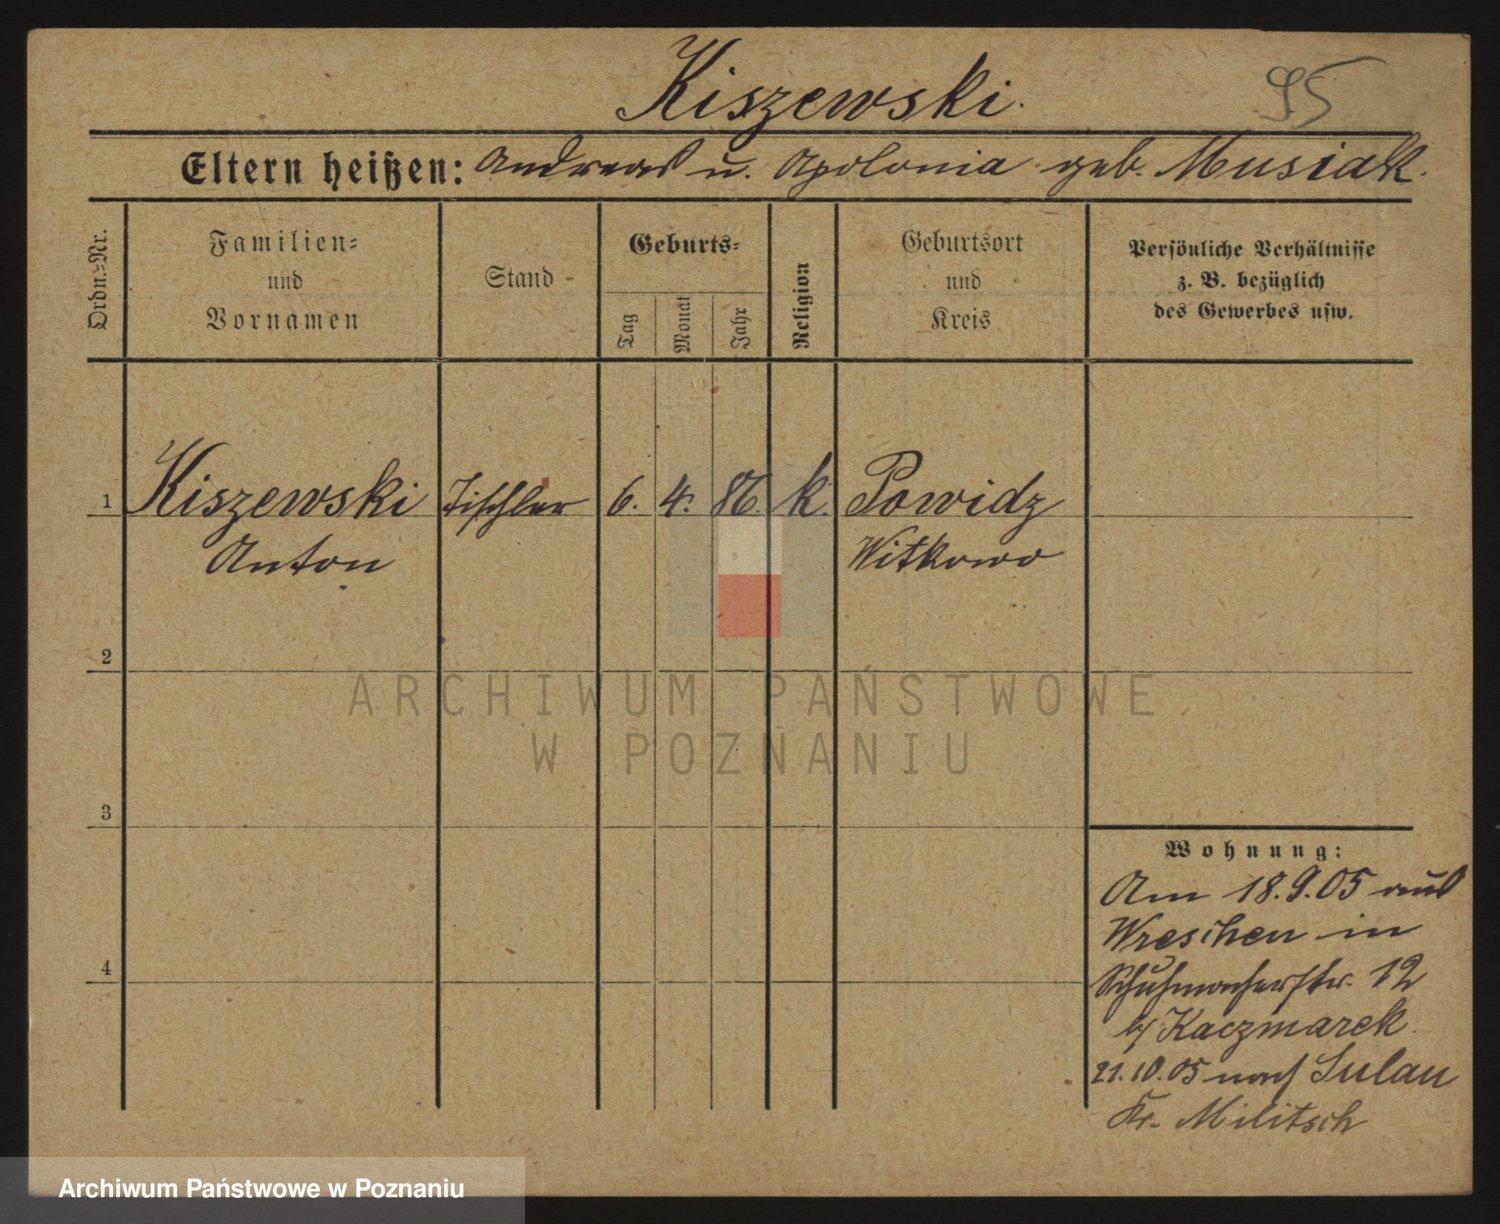 Kiszewski.
95
Eltern heißen: Andreas u. Apolonia geb. Musiak.
Ordn.-Nr.
Familien-
und
Vornamen
Stand
Geburts-
Tag
Monat
Jahr
Religion
Geburtsort
und
Kreis
Persönliche Verhältnisse
z. B. bezüglich
des Gewerbes usw.
1 Kiszewski Tischler 6. 4. 86. k. Powidz
Anton Witkowo
2
ARCHIWUM PAŃSTWOWE
W POZNANIU
3
Wohnung:
Am 18.9.05 aus
Wreschen in
4
Schuhmacherstr. 12
b/ Kaczmarek.
21.10.05 nach Sulau
Kr. Militsch
Archiwum Państwowe w Poznaniu